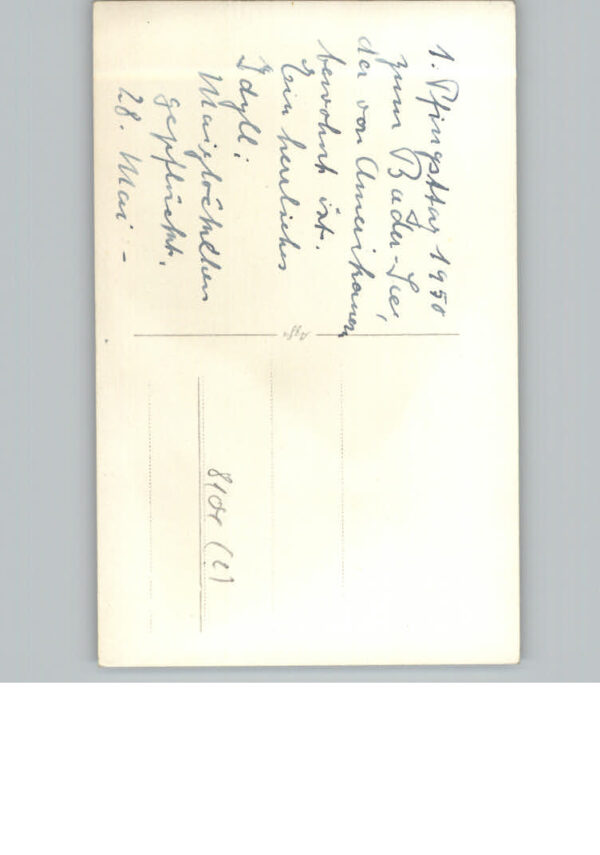 1. Pfingsttag 1950
zum Bader-See,
der von Amerikanern
bewohnt ist.
Ein herrliches
Idyll.
Maiglöckchen
gepflückt.
28. Mai -
Agfa